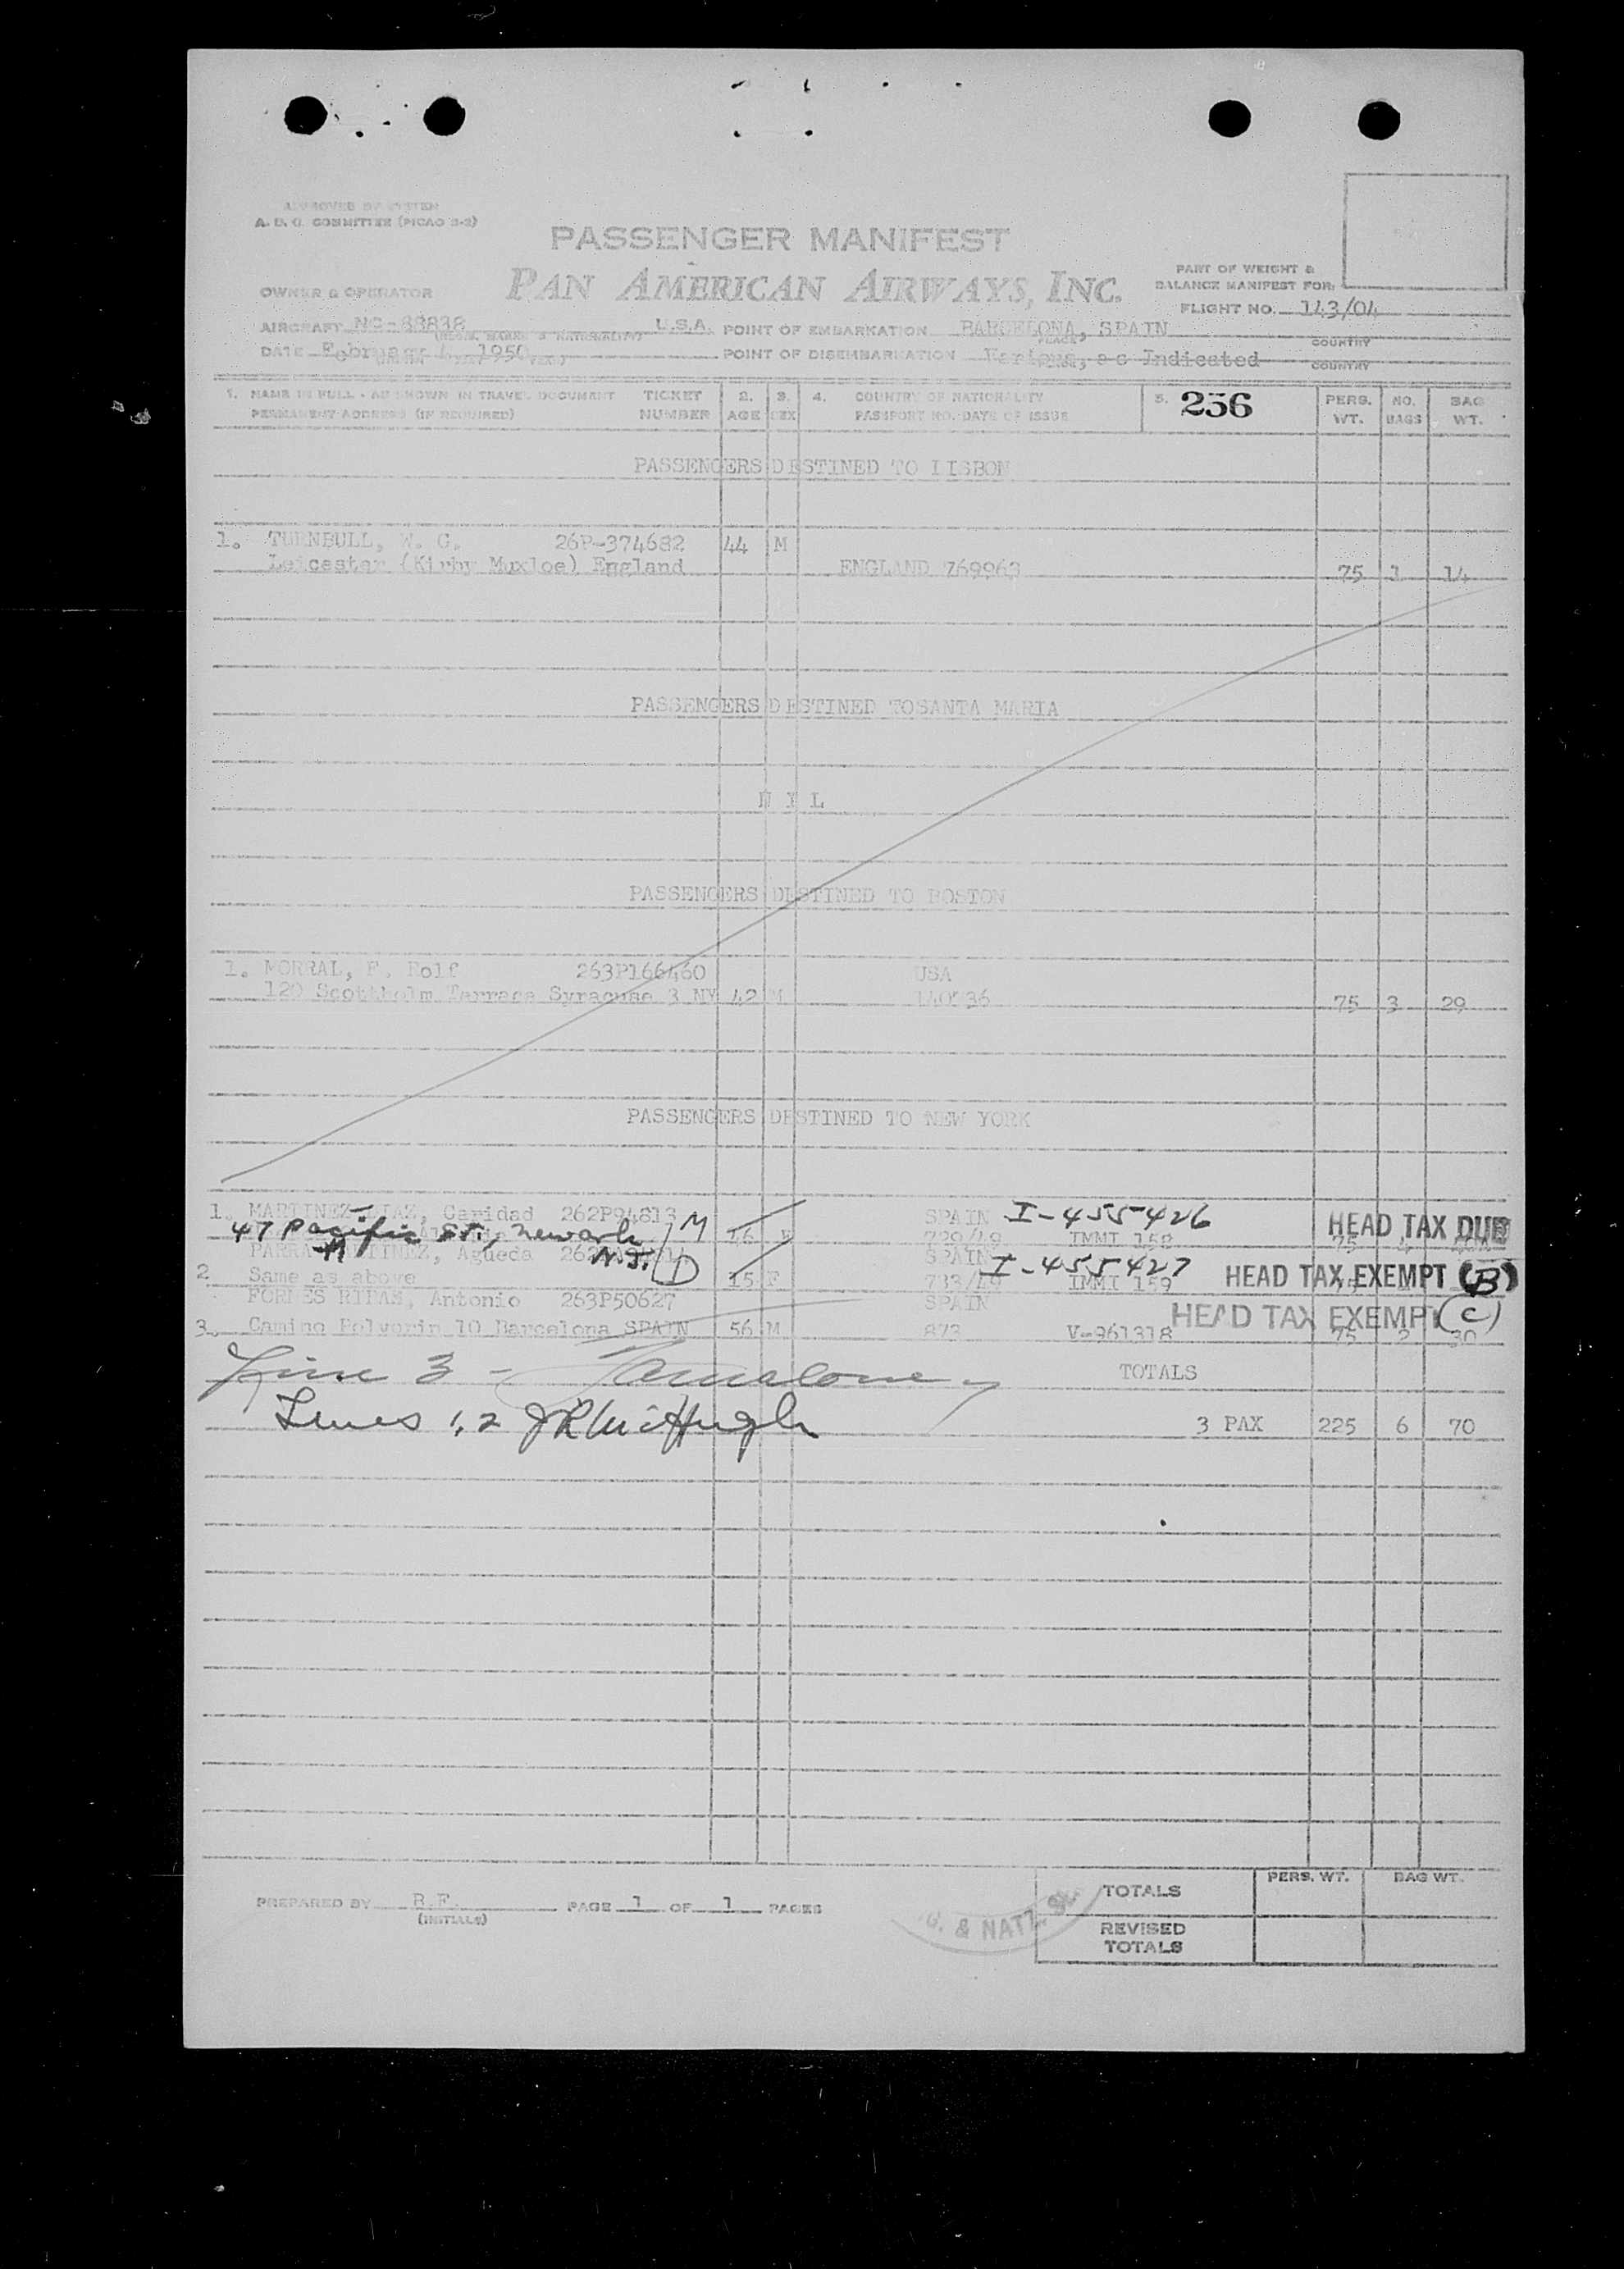 APPROVED BY SYSTEM
A. D. C. COMMITTEE (PICAO 2-2)
PASSENGER MANIFEST
PAN AMERICAN AIRWAYS, INC.
PART OF WEIGHT &
BALANCE MANIFEST FOR:
OWNER & OPERATOR
FLIGHT NO. 143/04
AIRCRAFT NC-88838 U.S.A. POINT OF EMBARKATION BARCELONA, SPAIN
(REGIS. MARKS & NATIONALITY) PLACE COUNTRY
DATE February 1950 POINT OF DISEMBARKATION Various, as Indicated
COUNTRY
1. NAME IN FULL - AS SHOWN IN TRAVEL DOCUMENT TICKET 2. 3. 4. COUNTRY OF NATIONALITY 5. 256 PERS. NO. BAG
PERMANENT ADDRESS (IF REQUIRED) NUMBER AGE SEX PASSPORT NO. DATE OF ISSUE WT. BAGS WT.
PASSENGERS DESTINED TO LISBON
1. TURNBULL, W. G. 26P-374682 44 M
Leicester (Kirby Muxloe) England ENGLAND 769963 75 1 14
PASSENGERS DESTINED TOSANTA MARIA
N I L
PASSENGERS DESTINED TO BOSTON
1. MORRAL, F. Rolf 263P166460 USA
120 Scottholm Terrace Syracuse 3 NY 42 M 75 3 29
PASSENGERS DESTINED TO NEW YORK
1. MARTINEZ DIAZ, Caridad 262P94813 SPAIN I-455426
47 Pacific St., Newark M 46 F 729/49 IMMI 158 HEAD TAX DUE 75
PARRA MARTINEZ, Agueda N.J. SPAIN I-455427
2 Same as above D 15 F 733/49 IMMI 159 HEAD TAX EXEMPT (B)
FORNES RIPAS, Antonio 263P50627 SPAIN HEAD TAX EXEMPT (C)
3. Camino Polvorin 10 Barcelona SPAIN 56 M 873 V-961318 75 2 30
Line 3 - TOTALS
Lines 1,2 JR McHugh 3 PAX 225 6 70
PREPARED BY R.F. PAGE 1 OF 1 PAGES
(INITIALS)
& NATZ.
PERS. WT. BAG WT.
TOTALS
REVISED
TOTALS